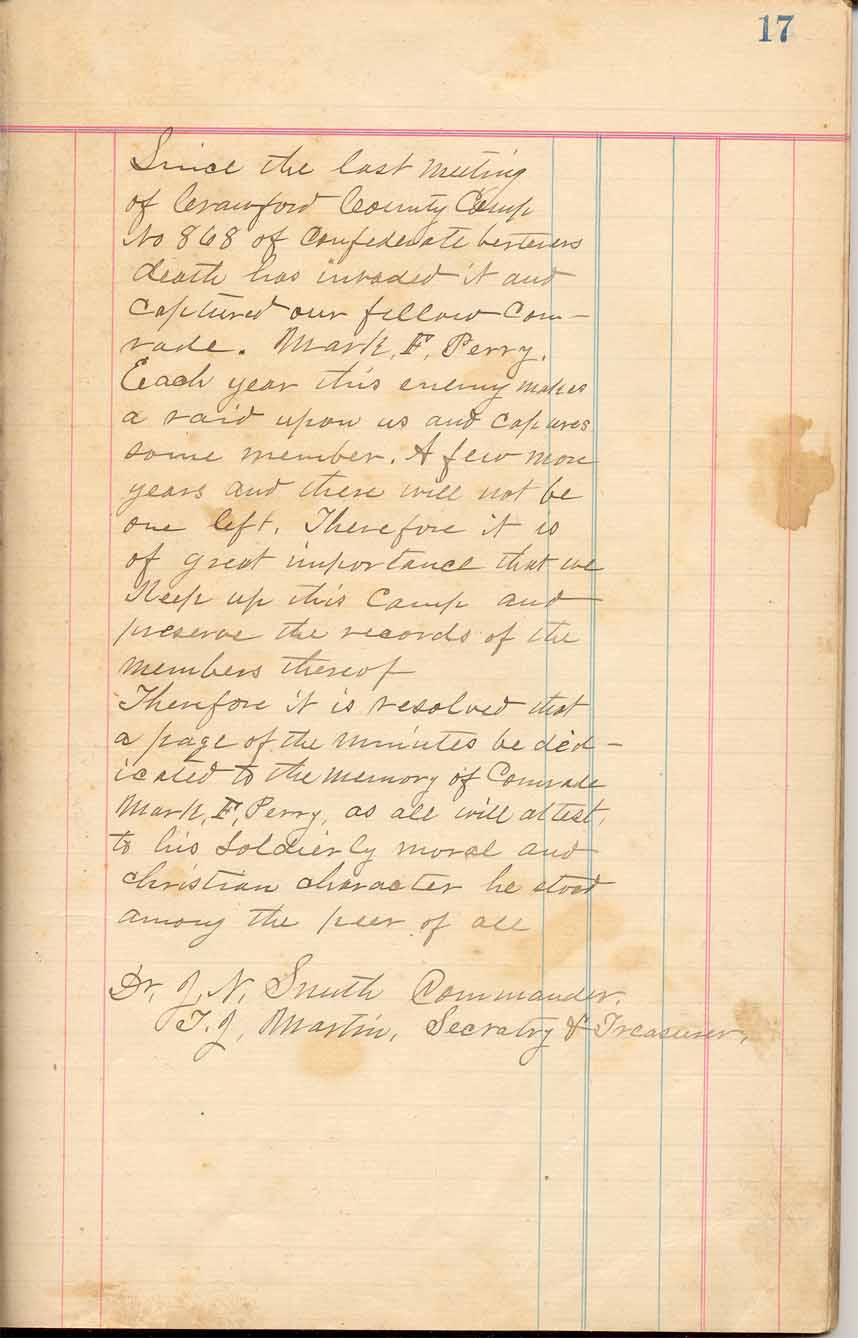 17
Since the last meeting
of Crawford County Camp
No 868 of Confederate
death has invaded it and
captured our fellow Com-
rade. Mark, F, Perry.
Each year this enemy makes
a raid upon us and capures
some member. A few more
years and there will not be
one left. Therefore it is
of great importance that we
Keep up this Camp and
preserve the records of the
members thereof
Therefore it is resolved that
a page of the minutes be ded-
icated to the memory of Comrade
Mark, F, Perry, as all will attest,
to his Soldierly moral and
christian character he stood
among the peer of all
Dr, J, N, Smith Commander.
T. J, Martin, Secratry & Treasurer,